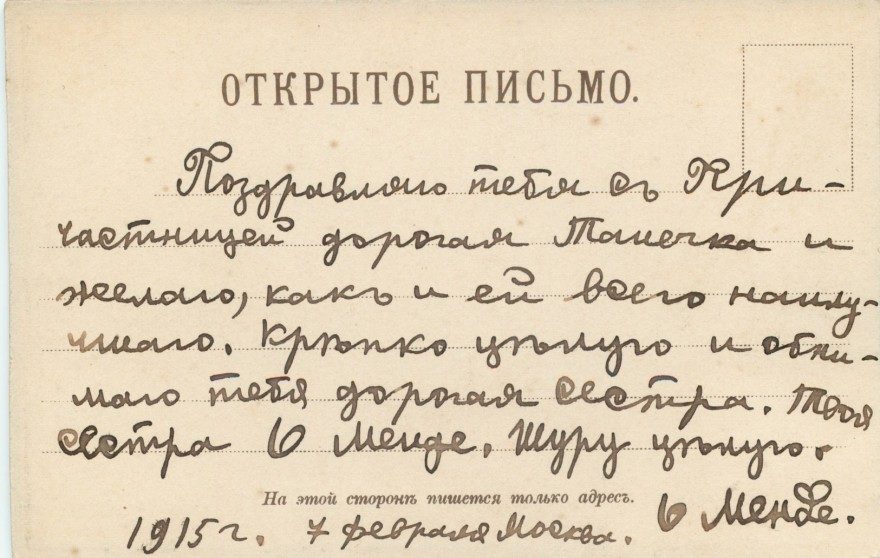 ОТКРЫТОЕ ПИСЬМО.
Поздравляю тебя съ При-
частницей дорогая Танечка и
желаю, какъ и ей всего наилу-
чшаго. Крѣпко цѣлую и обни-
маю тебя дорогая сестра. Твоя
сестра О Менде. Шуру цѣлую.
На этой сторонѣ пишется только адресъ.
О Менде.
1915 г. 7 февраля Москва.